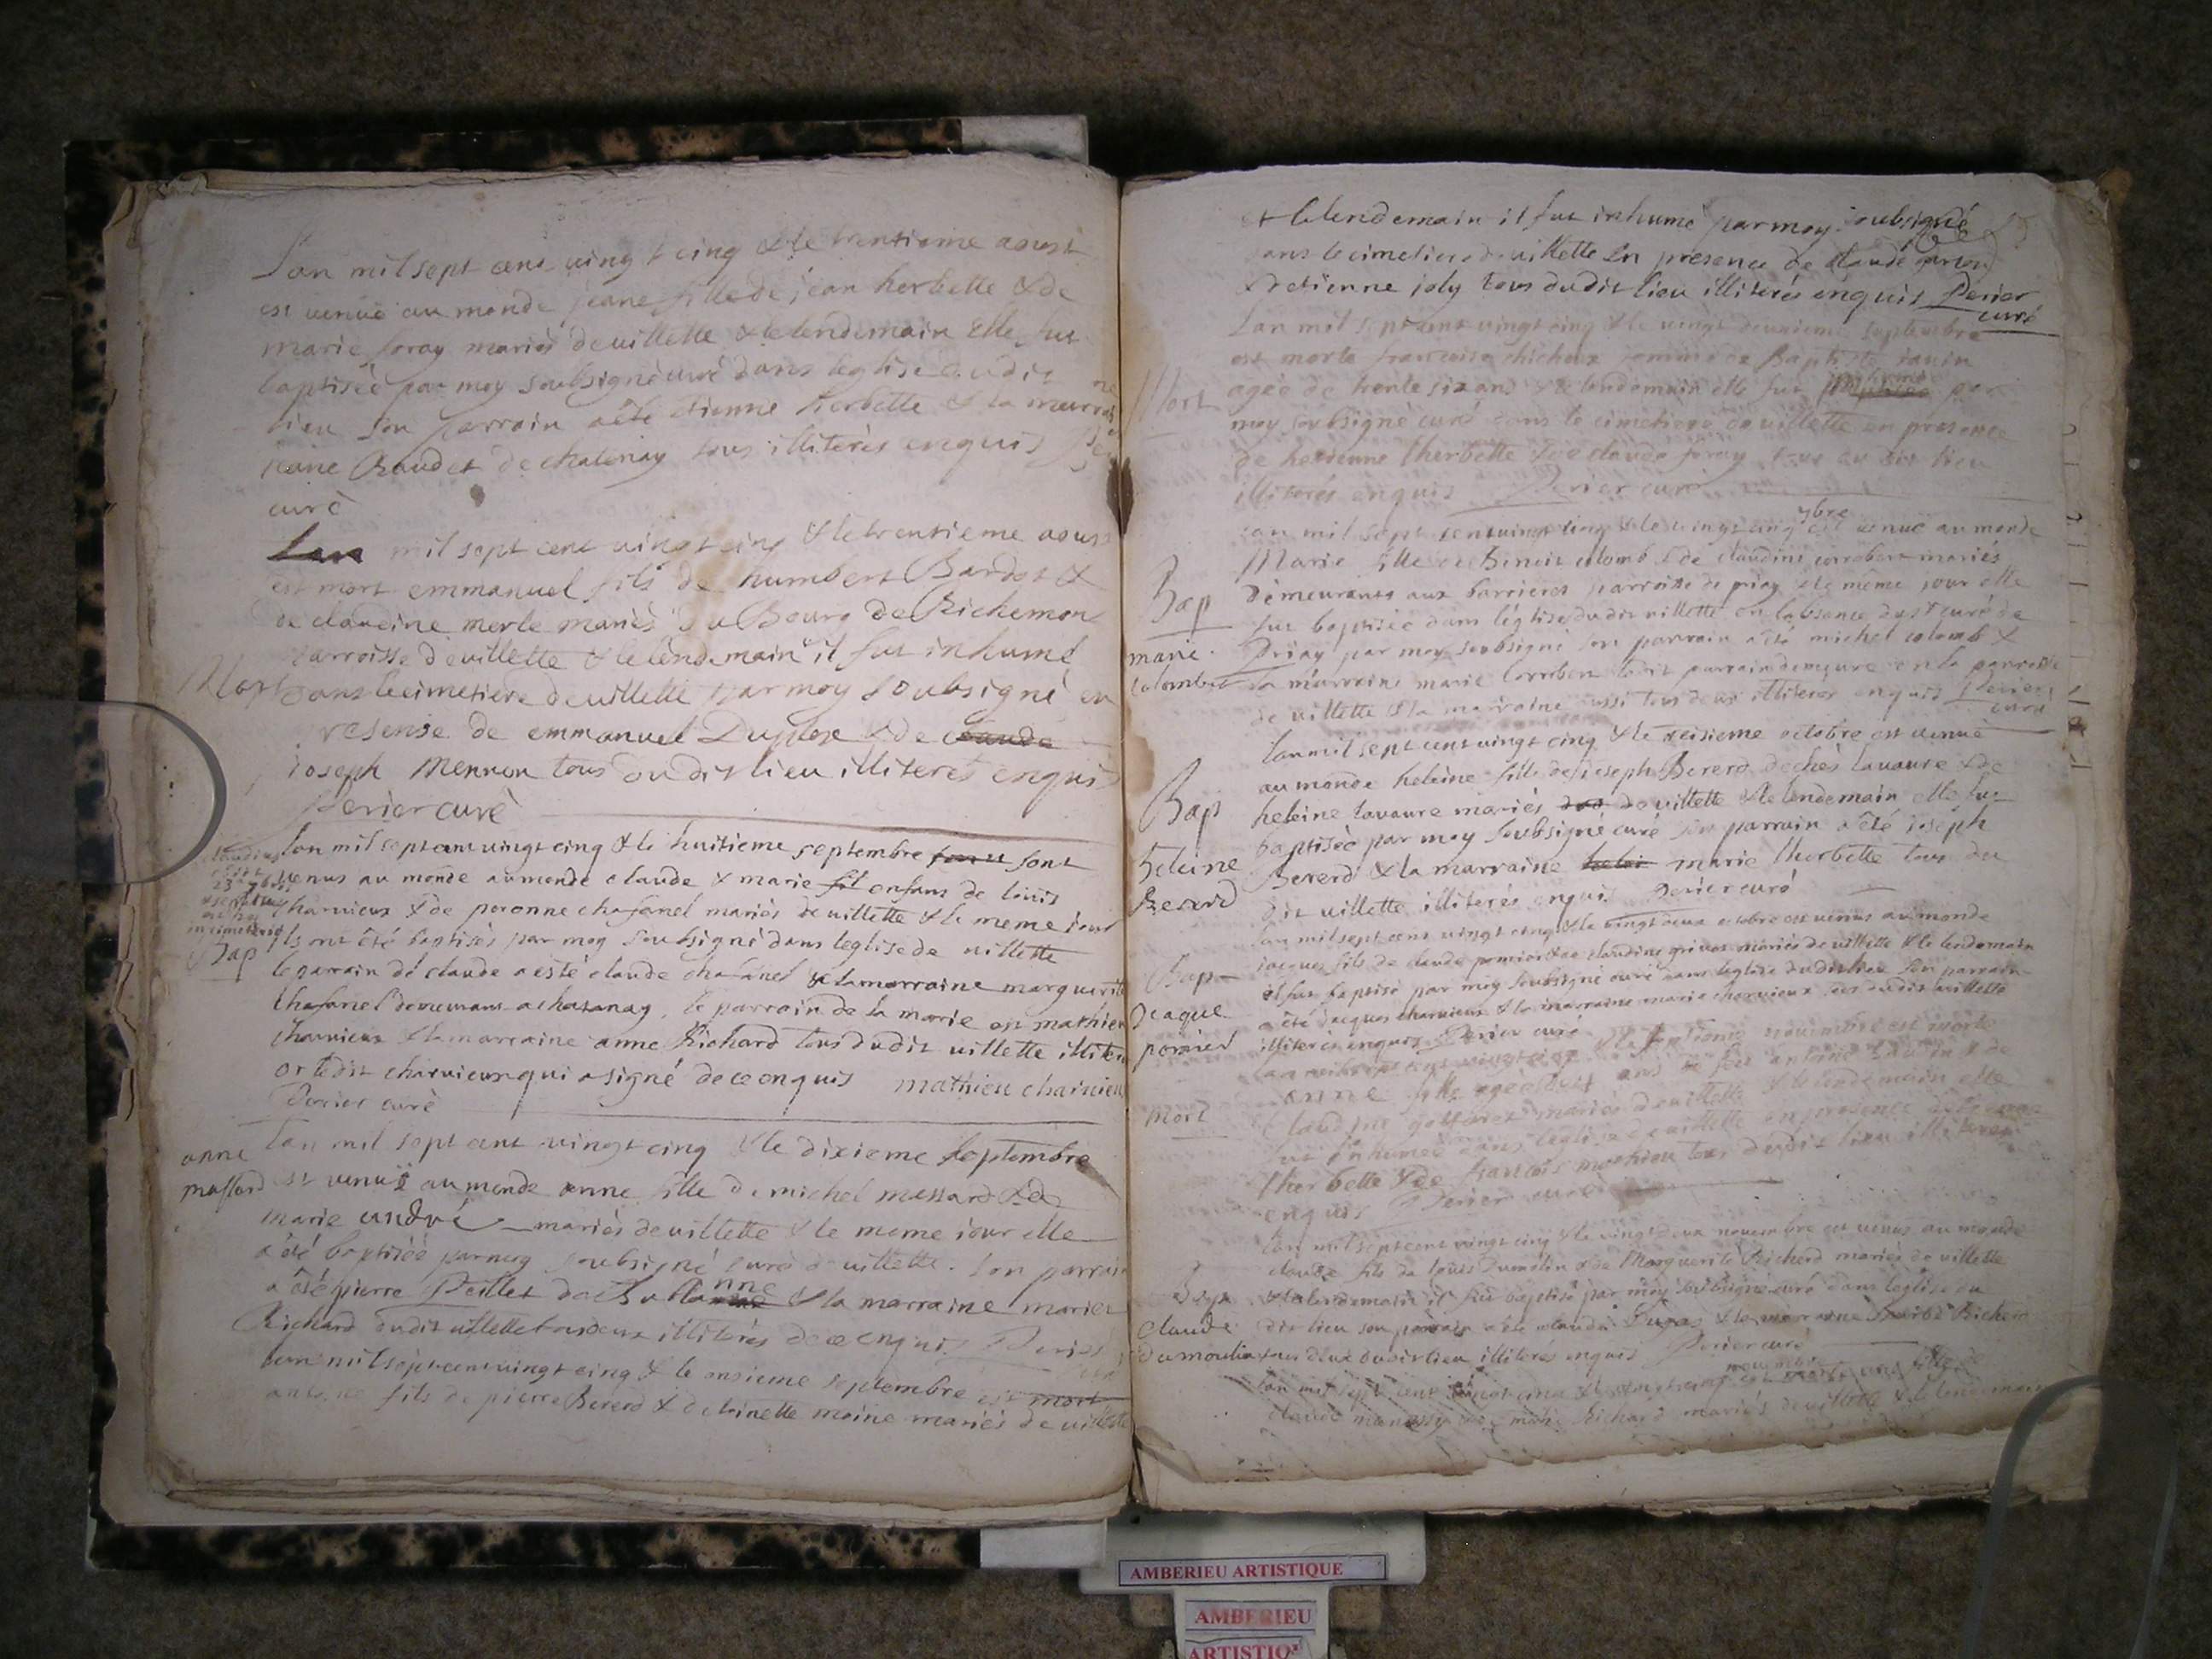 Lan mil sept cent vingt cinq & le trentieme aoust
est venüe au monde jeane fille de jean herbette & de
marie foray mariés de villette & le lendemain elle fut
baptisée par moy soubsigné curé dans leglise dudit
lieu son parrain a été etienne herbette & la marraine
jeane Baudet de chatenay tous illiterés enquis
curé
Lan mil sept cent vingt cinq & le trentieme aoust
est mort emmanuel fils de humbert Bardot &
de claudine merle mariés du Bourg de Richemon
parroisse de villette & le lendemain il fut inhumé
Mort
dans le cimetiere de villette par moy soubsigné en
presense de emmanuel Duplex & de claude
joseph Mennon tous du dit lieu illiterés enquis
Perier curé
lan mil sept cent vingt cinq & le huitieme septembre sont
venus au monde au monde claude & marie fil enfans de louis
23 7bre
charvieux & de peronne chafanel mariés de villette & le meme jour
Bap
ils ont été baptisés par moy soubsigné dans leglise de villette
le parrain de claude a esté claude chafanel & la marraine marguerite
chafanel demeurant a chatanay, le parrain de la marie est mathieu
charvieux & la marraine anne Richard tous du dit villette illiteré
or ledit charvieux qui a signé de ce enquis mathieu charvieu
Perier curé
anne
massard
lan mil sept cent vingt cinq & le dixieme septembre
est venuë au monde anne fille de michel massard & de
marie andré mariés de villette & le meme jour elle
a été baptisée par moy soubsigné curé de villette. son parrain
a été pierre Peillet de & la marraine marie
Richard dudit villette tous deux illiterés de ce enquis Perier
lan mil sept cent vingt cinq & le onsieme septembre est mort
antoine fils de pierre Bererd & de toinette moine mariés de villette
& le lendemain il fut inhumé par moy soubsigné
dans le cimetiere de villette en presence de claude
& detienne joly tous dudit lieu illiterés enquis Perier
curé
Lan mil sept cent vingt cinq & le vingt deuxieme septembre
est morte francoise femme de Baptiste
Mort
agée de trente six ans & le lendemain elle fut par
moy soubsigné curé dans le cimetiere de villette en presence
de hetienne lherbette & de claude foray tous du dit lieu
illiterés enquis Perier curé
lan mil sept cent vingt cinq & le vingt cinq 7bre est venuë au monde
Bap
marie
colombet
Marie fille de Benoit colomb & de claudine corrobert mariés
demeurants aux barrieres parroisse de priay & le meme jour elle
fut baptisée dans léglise dudit villette en labsence du sr curé de
Priay par moy soubsigné son parrain a été michel colomb &
la marraine marie corrobert ledit parrain demeure en la parroisse
de villette & la marraine aussi tous deux illiterés enquis Perier
curé
lan mil sept cent vingt cinq & le octobre est venuë
Bap
heleine
Bererd
au monde heleine fille de joseph Bererd de chés lavaure & de
heleine lavaure mariés de villette & le lendemain elle fut
baptisée par moy soubsigné curé son parrain a été joseph
Bererd & la marraine marie lherbette tous du
dit villette illiterés enquis Perier curé
lan mil sept cent vingt cinq & le vingt deux octobre est venus au monde
Bap
jaque
pomier
jacques fils de claude pomier & de claudine mariés de villette & le lendemain
il fut baptisé par moy soubsigné curé dans leglise dudit lieu son parrain
a été jacques charvieux & la marraine marie charvieux tous dudit villette
illiterés enquis Perier curé
lan mil sept cent vingt cinq & le novembre est morte
Mort
anne fille agée ans de feu antoine & de
claudine mariés de villette & le lendemain elle
fut inhumée dans leglise de villette en presence de
lherbette & de francois mathieu tous dudit lieu illiterés
enquis Perier curé
lan mil sept cent vingt cinq & le vingt deux novembre est venus au monde
Bap
claude
Dumoulin
claude fils de louis Dumolin & de Marguerite Richerd mariés de villette
& le lendemain il fut baptisé par moy soubsigné curé dans leglise du
dit lieu son parrain a été claude Dugas & la marraine Richerd
tous deux dudit lieu illiterés enquis Perier curé
lan mil sept cent vingt cinq & le novembre est morte une fille de
claude & de marie Richard mariés de villette & le lendemain
AMBERIEU ARTISTIQUE
AMBERIEU
ARTISTIQ